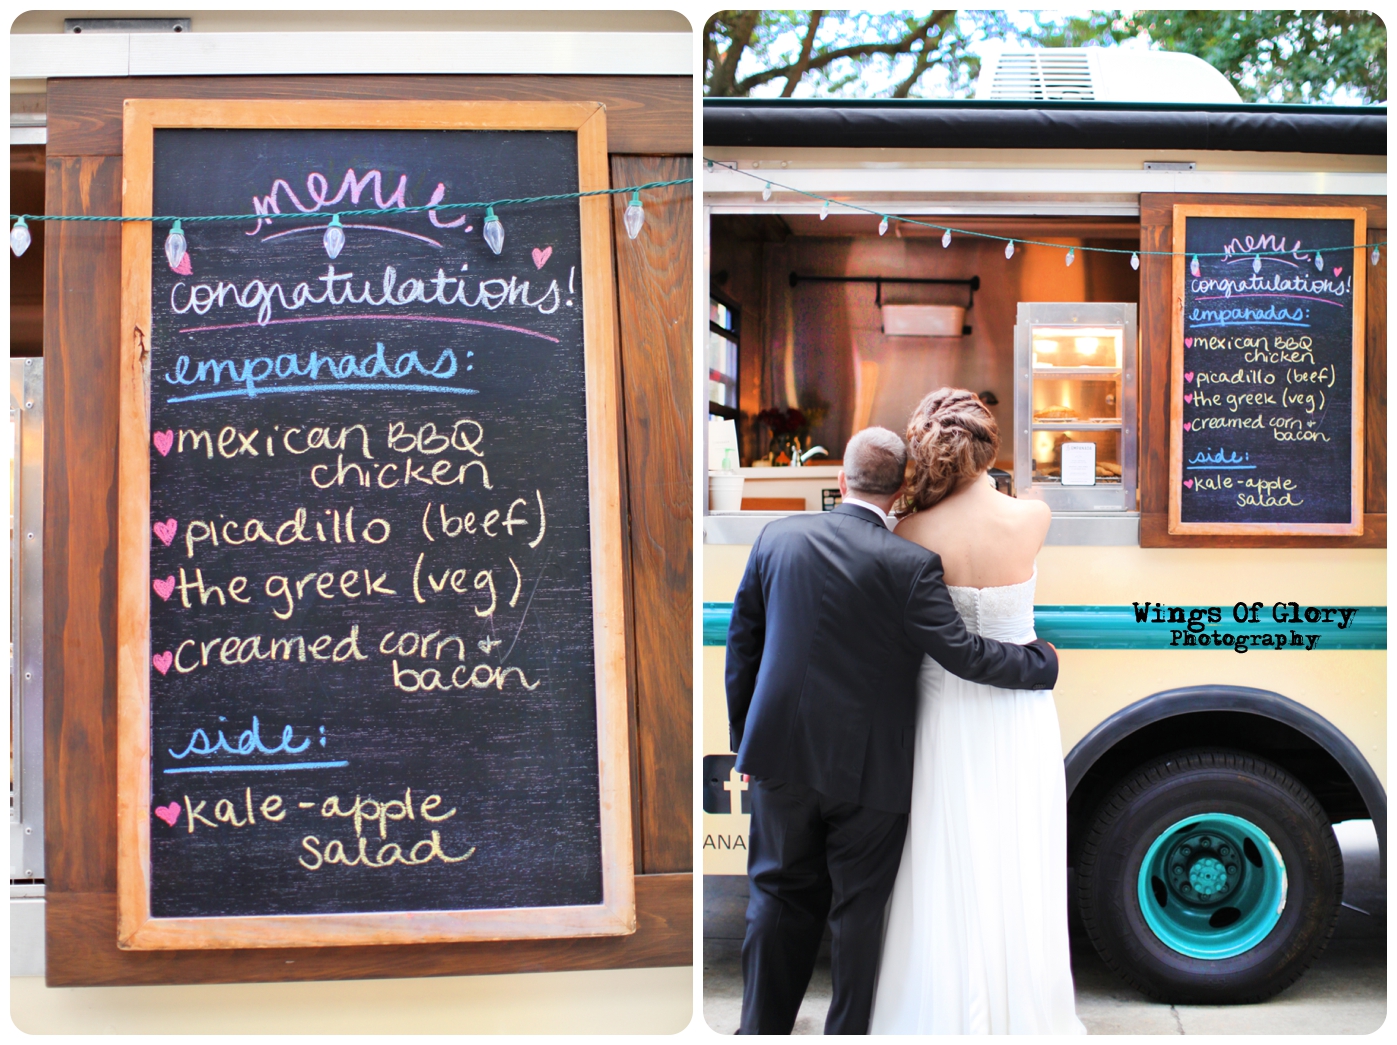 menu.
congratulations!
empanadas:
mexican BBQ
chicken
picadillo (beef)
the greek (veg)
creamed corn +
bacon
side:
kale-apple
salad
menu.
congratulations!
empanadas:
mexican BBQ
chicken
picadillo (beef)
the greek (veg)
creamed corn +
bacon
side:
kale-apple
salad
Wings Of Glory
Photography
f
ANA